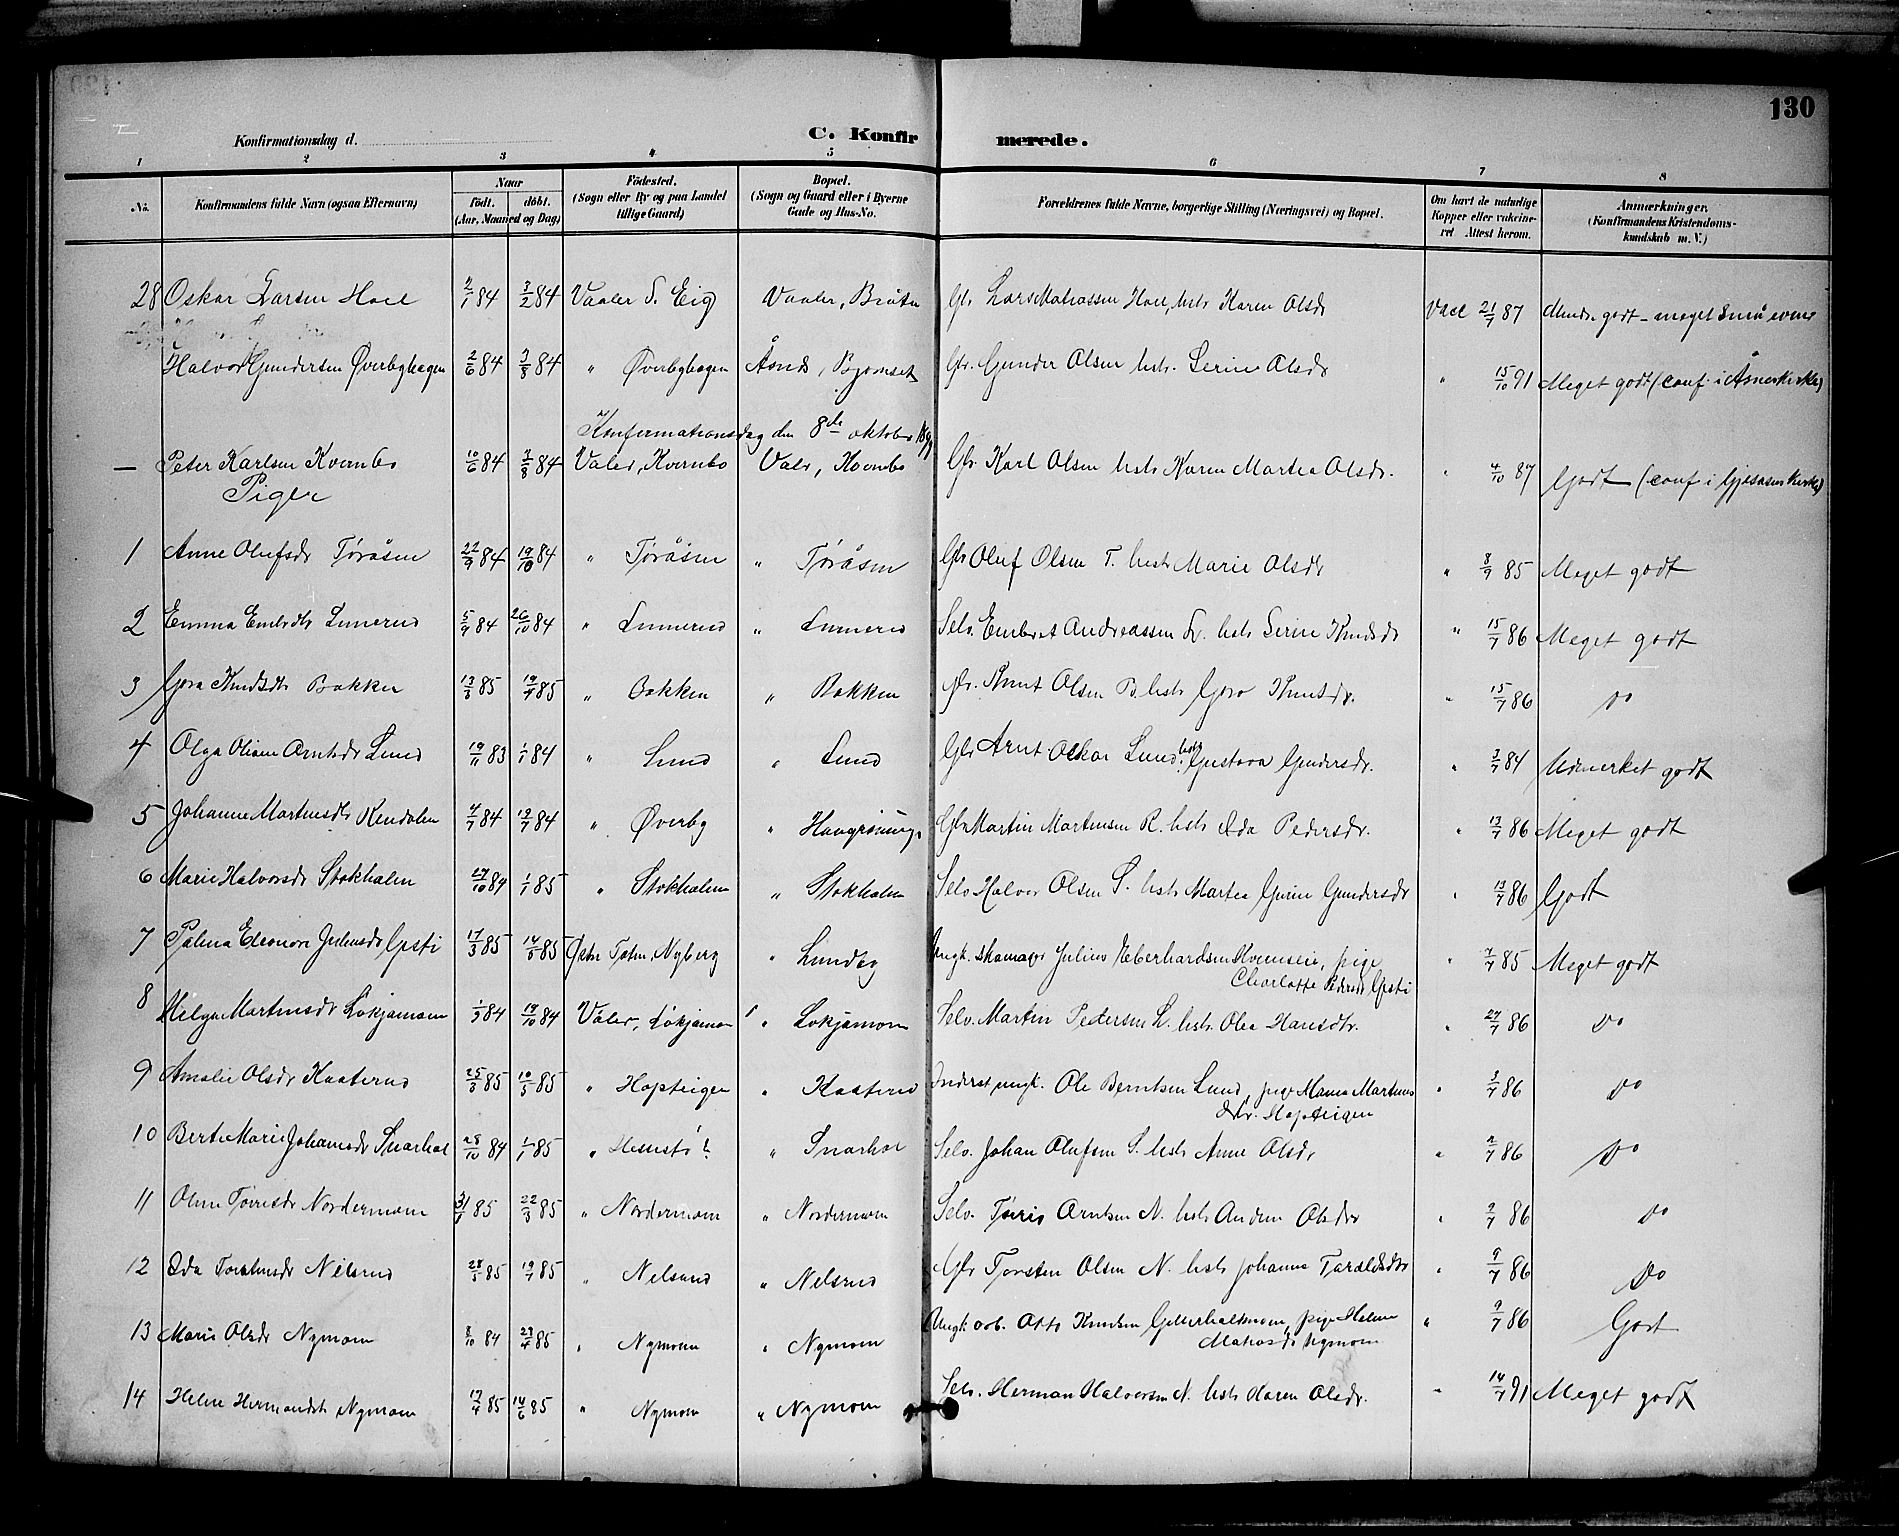 130
Konfirmationsdag d.
C. Konfirmerede.
1 2 3 4 5 6 7 8
No. Konfirmandens fulde Navn (ogsaa Efternavn) Naar født. døbt. (Aar, Maaned og Dag) Fødested. (Sogn eller By og paa Landet tillige Gaard) Bopæl. (Sogn og Gaard eller i Byerne Gade og Hus-No. Forældrenes fulde Navne, borgerlige Stilling (Næringsvei) og Bopæl. Om havt de naturlige Kopper eller vakcineret Attest herom. Anmærkninger. (Konfirmandens Kristendomskundskab m. V.)
28 Oskar Larsen Hoel 2/1 84 3/2 84 Vaaler S. Eig Vaaler, Bråten Gbr. Lars Mathiassen Hoel, hstr Karen Olsdr Vacc 21/7 87 Mindre godt - meget små evner
Halvor Gundersen Øverbyhagen 2/6 84 3/8 84 " Øverbyhagen Åsnes, Bjørnset Gbr. Gunder Olsen hstr. Serine Olsdr " 15/10 91 Meget godt (conf. i Åsnes kirke)
Konfirmationsdag den 8de oktober 1899
— Peter Karlsen Kvernbo 10/6 84 3/8 84 Våler, Kvernbo Våler, Kvernbo Gbr Karl Olsen hstr Karen Martea Olsdr. " 4/10 87 Godt (conf i Gjesåsen kirke)
Piger
1 Anne Olufsdr Tøråsen 22/9 84 19/10 84 " Tøråsen " Tøråsen Gbr Oluf Olsen T. hstr Marie Olsdr " 8/9 85 Meget godt
2 Emma Embrdtr Linnerud 5/9 84 26/10 84 " Linnerud " Linnerud Selv. Embret Andreassen L. hstr Serine Knudsdr " 15/7 86 Meget godt
3 Goro Knudsdtr Bakken 13/3 85 19/4 85 " Bakken " Bakken Gbr. Knut Olsen B. hstr Goro Knutsdr. " 15/7 86 Do
4 Olga Oliane Arntsdr Lund 19/11 83 1/1 84 " Lund " Lund Gbr Arnt Oskar Lund hstr. Gustava Gundersdr. " 3/7 84 Udmerket godt
5 Johanne Martinsdtr Rendalen 4/7 84 13/7 84 " Øverby " Haugrønningn Gbr Martin Martinsen R. hstr Ida Pedersdr. " 13/7 86 Meget godt
6 Marie Halvorsdr Stokholen 27/10 84 1/1 85 " Stokholen " Stokholen Selv Halvor Olsen S. hstr Martea Gurine Gundersdr " 13/7 86 Godt
7 Palma Eleonore Juliusdr Gjesti 17/3 85 14/5 85 Østre Toten, Nyberg " Lundby Ungk. skomager Julius Eberhardsen Kvemseie, pige
Charlotte Pedersdr Gjesti " 7/7 85 Meget godt
8 Helga Martinsdr Løkjamoen 1/9 84 19/10 84 Våler, Løkjamoen " Løkjamoen Selv. Martin Pedersen L. hstr. Olea Hansdtr. " 27/7 86 Do
9 Amalie Olsdr Kaaterud 25/3 85 10/5 85 " Hopteigen " Kaaterud Inderst ungk. Ole Berntsen Lund, pige Maren Martins
dtr. Hopteigen " 3/7 86 Do
10 Berte Marie Johansdr Snarhol 28/10 84 1/1 85 " " Snarhol Selv. Johan Olufsen S. hstr Anne Olsdr " 2/7 86 Do
11 Oline Tørrisdr Nordermoen 31/1 85 22/3 85 " Nordermoen " Nordermoen Selv. Tørris Arntsen N. hstr Andrea Olsdr " 2/7 86 Do
12 Ida Torstensdr Nelsrud 28/5 85 19/7 85 " Nelsrud " Nelsrud Gbr Torsten Olsen N. hstr Johanne Taraldsdtr " 9/7 86 Do
13 Marie Olsdr Nymoen 8/10 84 29/4 85 " Nymoen " Nymoen Ungk. arb. Otto Knudsen pige Helene
Mathiasdr Nymoen " 9/7 86 Godt
14 Helene Hermansdtr Nymoen 17/4 85 14/6 85 " Nymoen " Nymoen Selv. Herman Halvorsen N. hstr Karen Olsdr. " 14/7 91 Meget godt